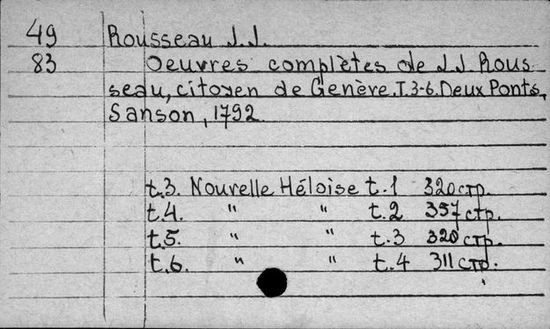 49 Rousseau J.J.
83 Oeuvres complètes de J.J. Rous
seau, citoyen de Genève. T.3-6. Deux Ponts,
Sanson, 1792
t.3. Nouvelle Héloise t.1 320 стр.
t.4. " " t.2 357 стр.
t.5. " " t.3 320 стр.
t.6. " " t.4 311 стр.